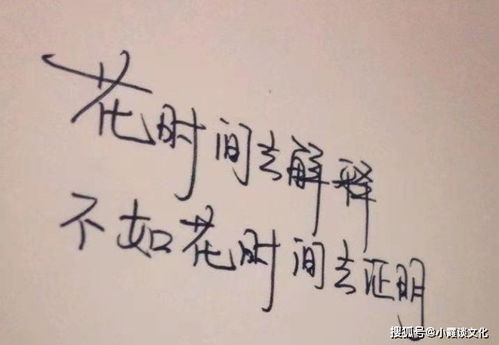 花时间去解释
不如花时间去证明
搜狐号@小霞谈文化